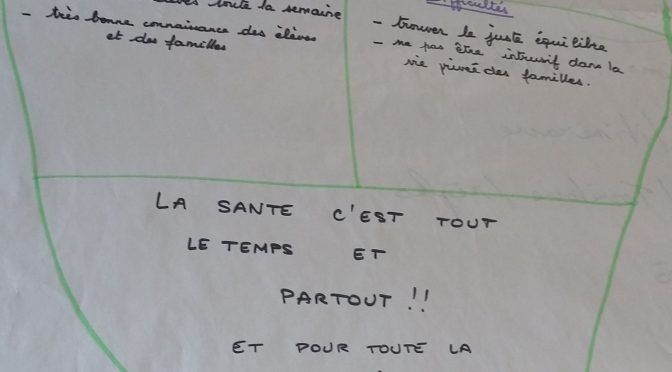 toute la semaine
- très bonne connaissance des élèves
et des familles
Difficultés
- trouver le juste équilibre
- ne pas être intrusif dans la
vie privée des familles.
LA SANTE C'EST TOUT
LE TEMPS ET
PARTOUT !!
ET POUR TOUTE LA